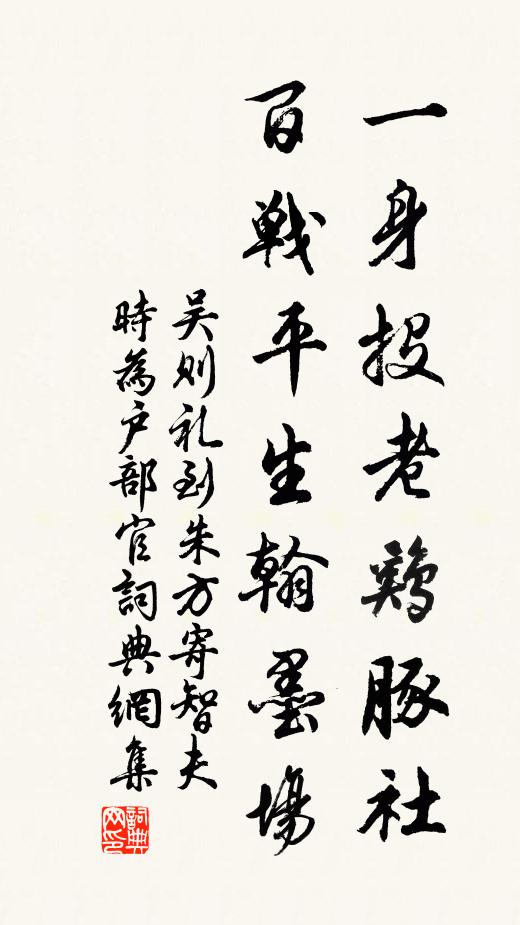 一身投老鷄豚社
百戦平生翰墨場
吴则礼到朱方寄智夫
時為户部官詞典網集
詞典网印